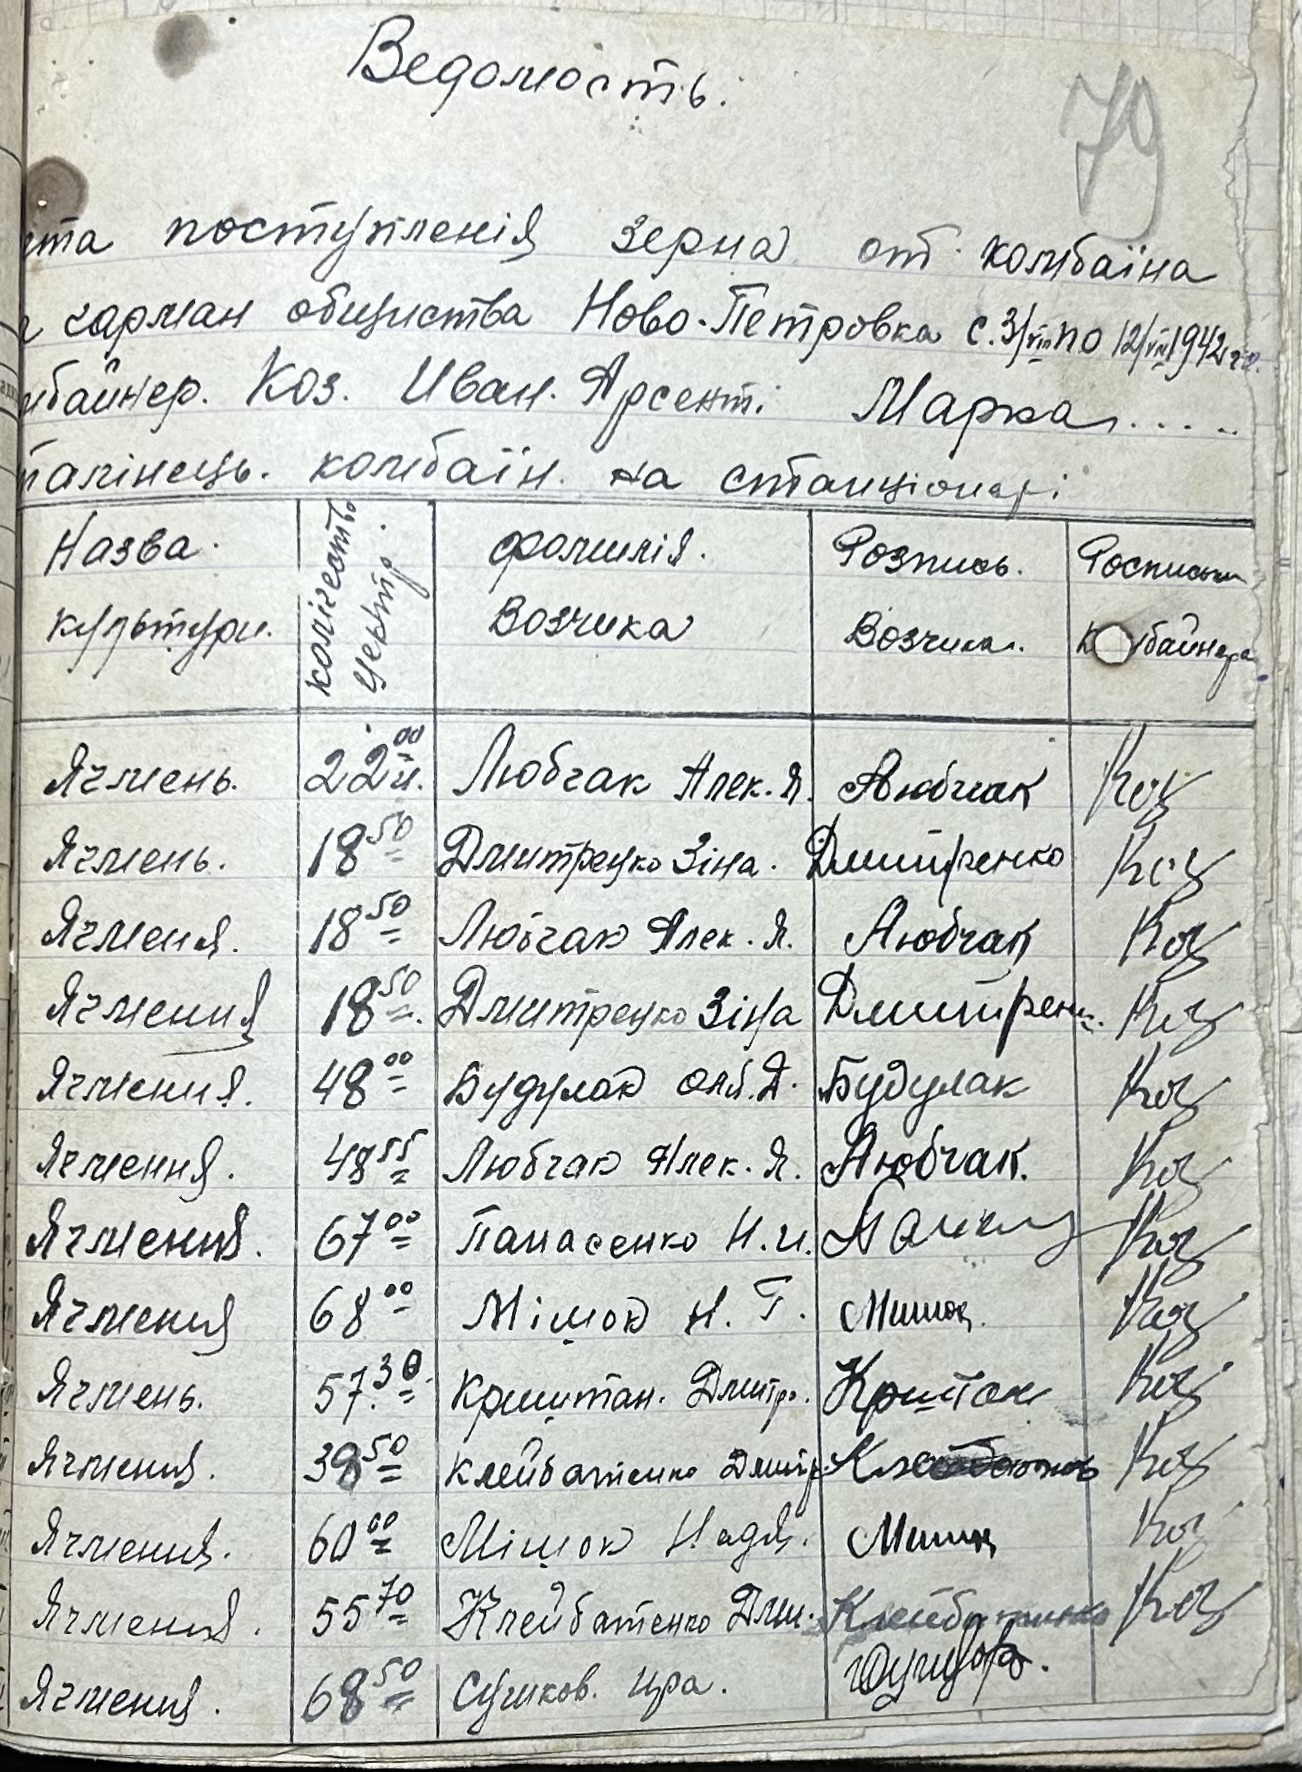 Ведомость.
79
поступленія зерна от комбаїна
гарман общества Ново-Петровка с.3/VIII по 12/VIII 1942 го.
байнер. Коз. Иван. Арсенті Марка.....
талінець. комбаїн. на станціонарі
Назва. колічество фамилія. Розпись. Росписька
культури. центр. Возчика Возчика. к байнера
Ячмень. 22 00 ц. Любчак Алек. Я. Любчак Коз
Ячмень. 18 50 Дмитренко Зіна. Дмитренко Коз
Ячменя. 18 50 Любчак Алек. Я. Любчак Коз
Ячмения 18 50 Дмитренко Зіна Дмитрен. Коз
Ячмения. 48 00 Будулак Д. Будулак Коз
Ячмення. 48 55 Любчак Алек. Я. Любчак. Коз
Ячмення. 67 00 Панасенко Н.И. Коз
Ячмення 68 00 Мішок Н. Г. Мишок. Коз
Ячмень. 57. 30 Криштан. Дмитро. Коз
Ячменя. 38 50 Клейбатенко Дмитр. Коз
Ячмення. 60 00 Мішок Надя. Коз
Ячменя. 55 70 Клейбатенко Дми. Клейбатенко Коз
Ячменя. 68 50 Сушков. Ира.